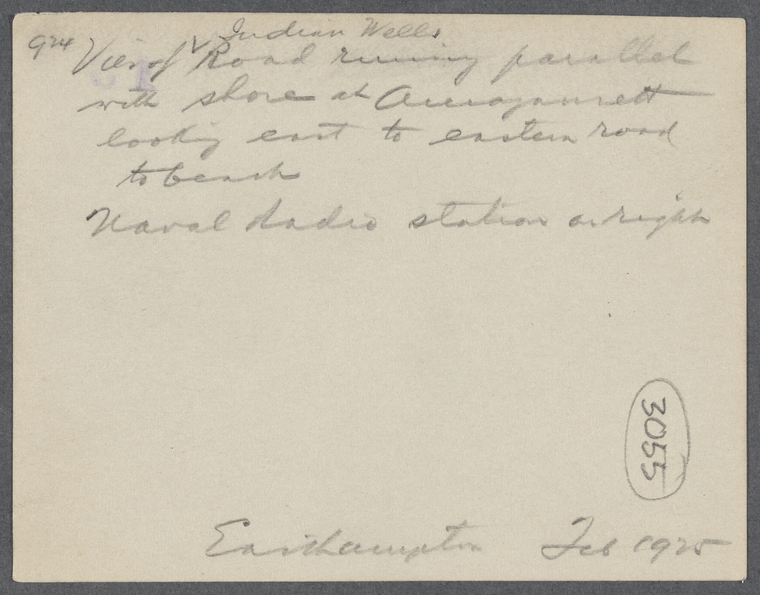 924
Indian Wells
View of V Road running parallel
with shore at Amagansett
looking east to eastern road
to beach
Naval Radio station on right
3055
Easthampton Feb 1925